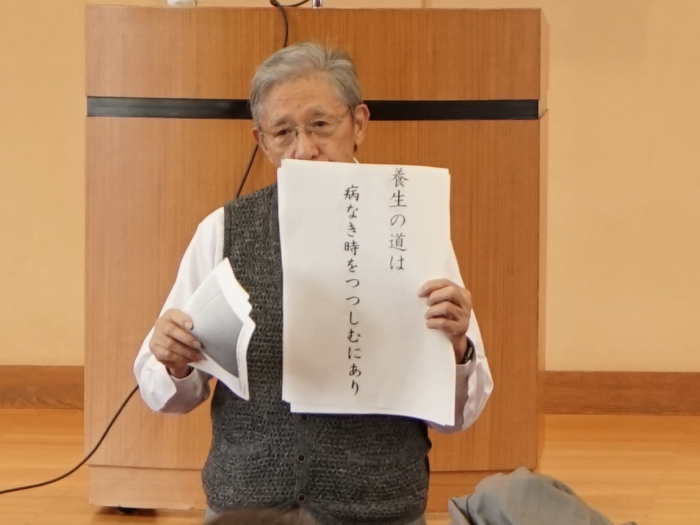 養生の道は
病なき時をつつしむにあり